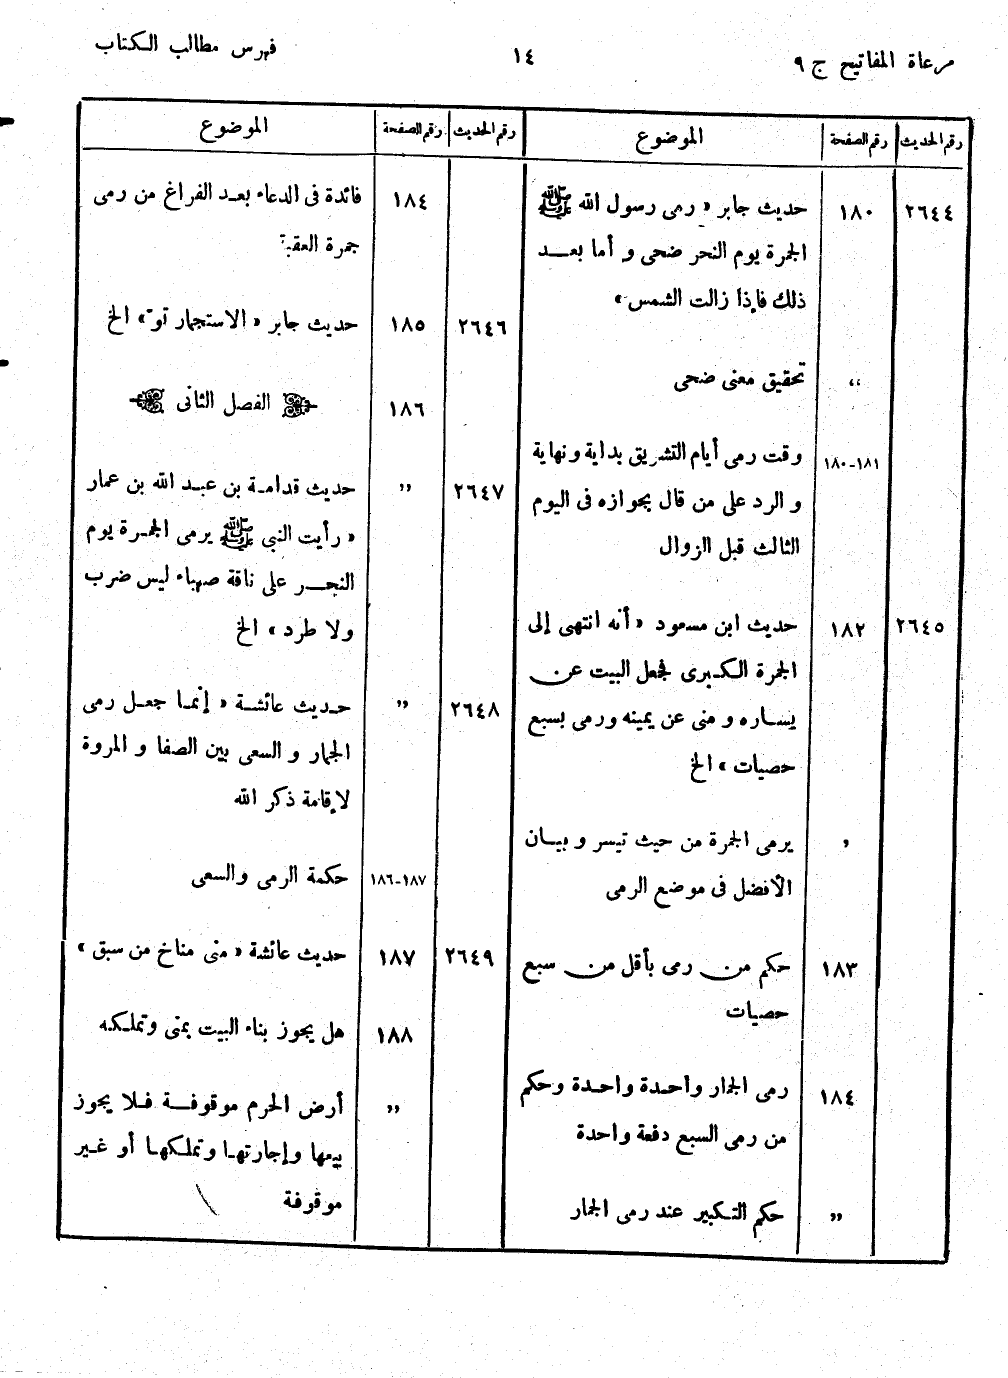 مرعاة المفاتيح ج ٩
١٤
فهرس مطالب الكتاب
رقم الحديث رقم الصفحة الموضوع
٢٦٤٤ ١٨٠ حديث جابر « رمى رسول الله ﷺ
الجمرة يوم النحر ضحى و أما بعد
ذلك فإذا زالت الشمس »
،، تحقيق معنى ضحى
١٨٠-١٨١ وقت رمى أيام التشريق بداية و نهاية
و الرد على من قال بجوازه فى اليوم
الثالث قبل الزوال
٢٦٤٥ ١٨٢ حديث ابن مسعود « أنه انتهى إلى
الجمرة الكبرى فجعل البيت عن
يساره و منى عن يمينه ورمى بسبع
حصيات » الخ
، يرمى الجمرة من حيث تيسر و بيان
الأفضل فى موضع الرمى
١٨٣ حكم من رمى بأقل من سبع
حصيات
١٨٤ رمى الجمار واحدة واحدة وحكم
من رمى السبع دفعة واحدة
،، حكم التكبير عند رمى الجمار
رقم الحديث رقم الصفحة الموضوع
١٨٤ فائدة فى الدعاء بعد الفراغ من رمى
جمرة العقبة
٢٦٤٦ ١٨٥ حديث جابر « الاستجمار تو » الخ
١٨٦ الفصل الثانى
٢٦٤٧ ،، حديث قدامة بن عبد الله بن عمار
« رأيت النبى ﷺ يرمى الجمرة يوم
النحر على ناقة صهباء ليس ضرب
ولا طرد » الخ
٢٦٤٨ ،، حديث عائشة « إنما جعل رمى
الجمار و السعى بين الصفا و المروة
لإقامة ذكر الله
١٨٦-١٨٧ حكمة الرمى والسعى
٢٦٤٩ ١٨٧ حديث عائشة « منى مناخ من سبق »
١٨٨ هل يجوز بناء البيت بمنى وتملكه
،، أرض الحرم موقوفة فلا يجوز
بيعها وإجارتها وتملكها أو غير
موقوفة